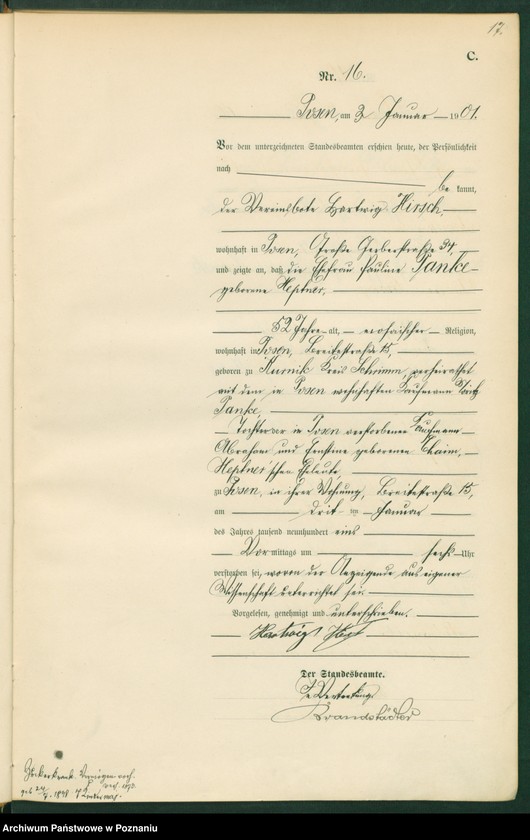 17.
C.
Nr. 16.
Posen, am 3 Januar 1901.
Vor dem unterzeichneten Standesbeamten erschien heute, der Persönlichkeit
nach
be kannt,
der Vereinsbote Hartwig Hirsch,
wohnhaft in Posen, Große Gerberstraße 34,
und zeigte an, daß die Ehefrau Pauline Panke
geborene Heptner,
52 Jahre alt, mosaischer Religion,
wohnhaft in Posen, Breitestraße 15,
geboren zu Kurnik Kreis Schrimm, verheirathet
mit dem in Posen wohnhaften Kaufmann
Panke,
Tochter der in Posen verstorbenen Kaufmann
Abraham und Ernstine geborenen Chaim,
Heptner'schen Eheleute
zu Posen, in ihrer Wohnung, Breitestraße 15,
am drit ten Januar
des Jahres tausend neunhundert eins
Vor mittags um sechs Uhr
verstorben sei, wovon der Anzeigende aus eigener
Wissenschaft unterrichtet sei.
Vorgelesen, genehmigt und unterschrieben.
Hartwig Hirsch
Der Standesbeamte.
In Vertretung
Brandstädter
Zuckerkrank. Vermögen
geb 1848
Archiwum Państwowe w Poznaniu